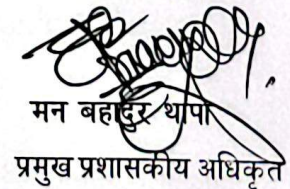 मन बहादुर थापा
प्रमुख प्रशासकीय अधिकृत